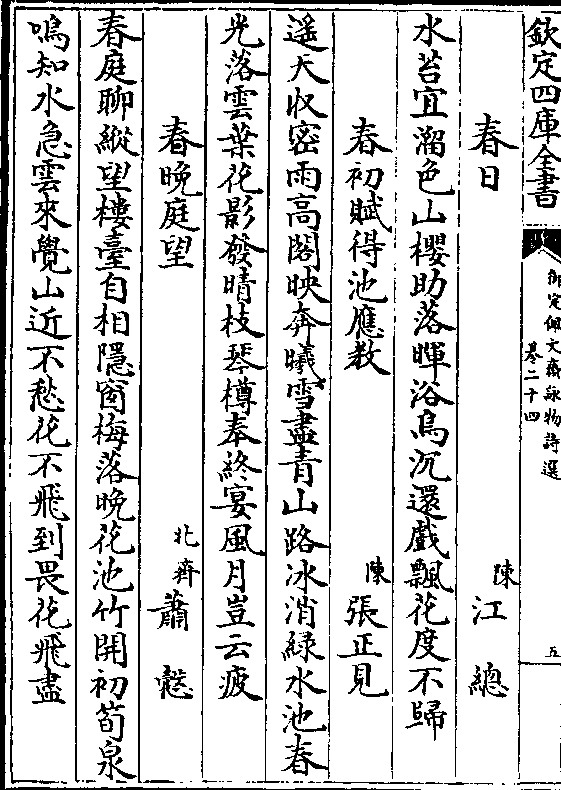 欽定四庫全書
御定佩文齋詠物詩選
卷二十四
五
春日
陳江總
水苔宜溜色山櫻助落暉浴鳥沉還戲飄花度不歸
春初賦得池應教
陳張正見
遥天收密雨高閣映奔曦雪盡青山路冰消緑水池春
光落雲葉花影發晴枝琴樽奉終宴風月豈云疲
春晚庭望
北齊蕭慤
春庭聊縱望樓臺自相隱窗梅落晚花池竹開初筍泉
鳴知水急雲來覺山近不愁花不飛到畏花飛盡